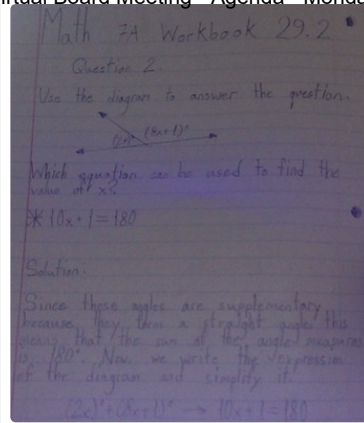 Virtual Board Meeting - Agenda - Monda
Math 7A Workbook 29.2
Question 2
Use the diagram to answer the question.
(8x+1)°
Which equation can be used to find the
value of x?
10x+1=180
Solution:
Since these angles are supplementary
because they form a straight angle, this
means that the sum of the angle measures
is 180°. Now, we write the expression
of the diagram and simplify it.
(2x)°+(8x+1)° → 10x+1=180